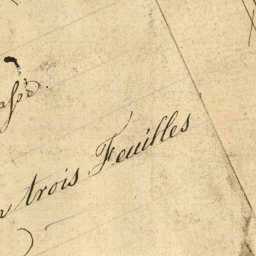 trois Feuilles